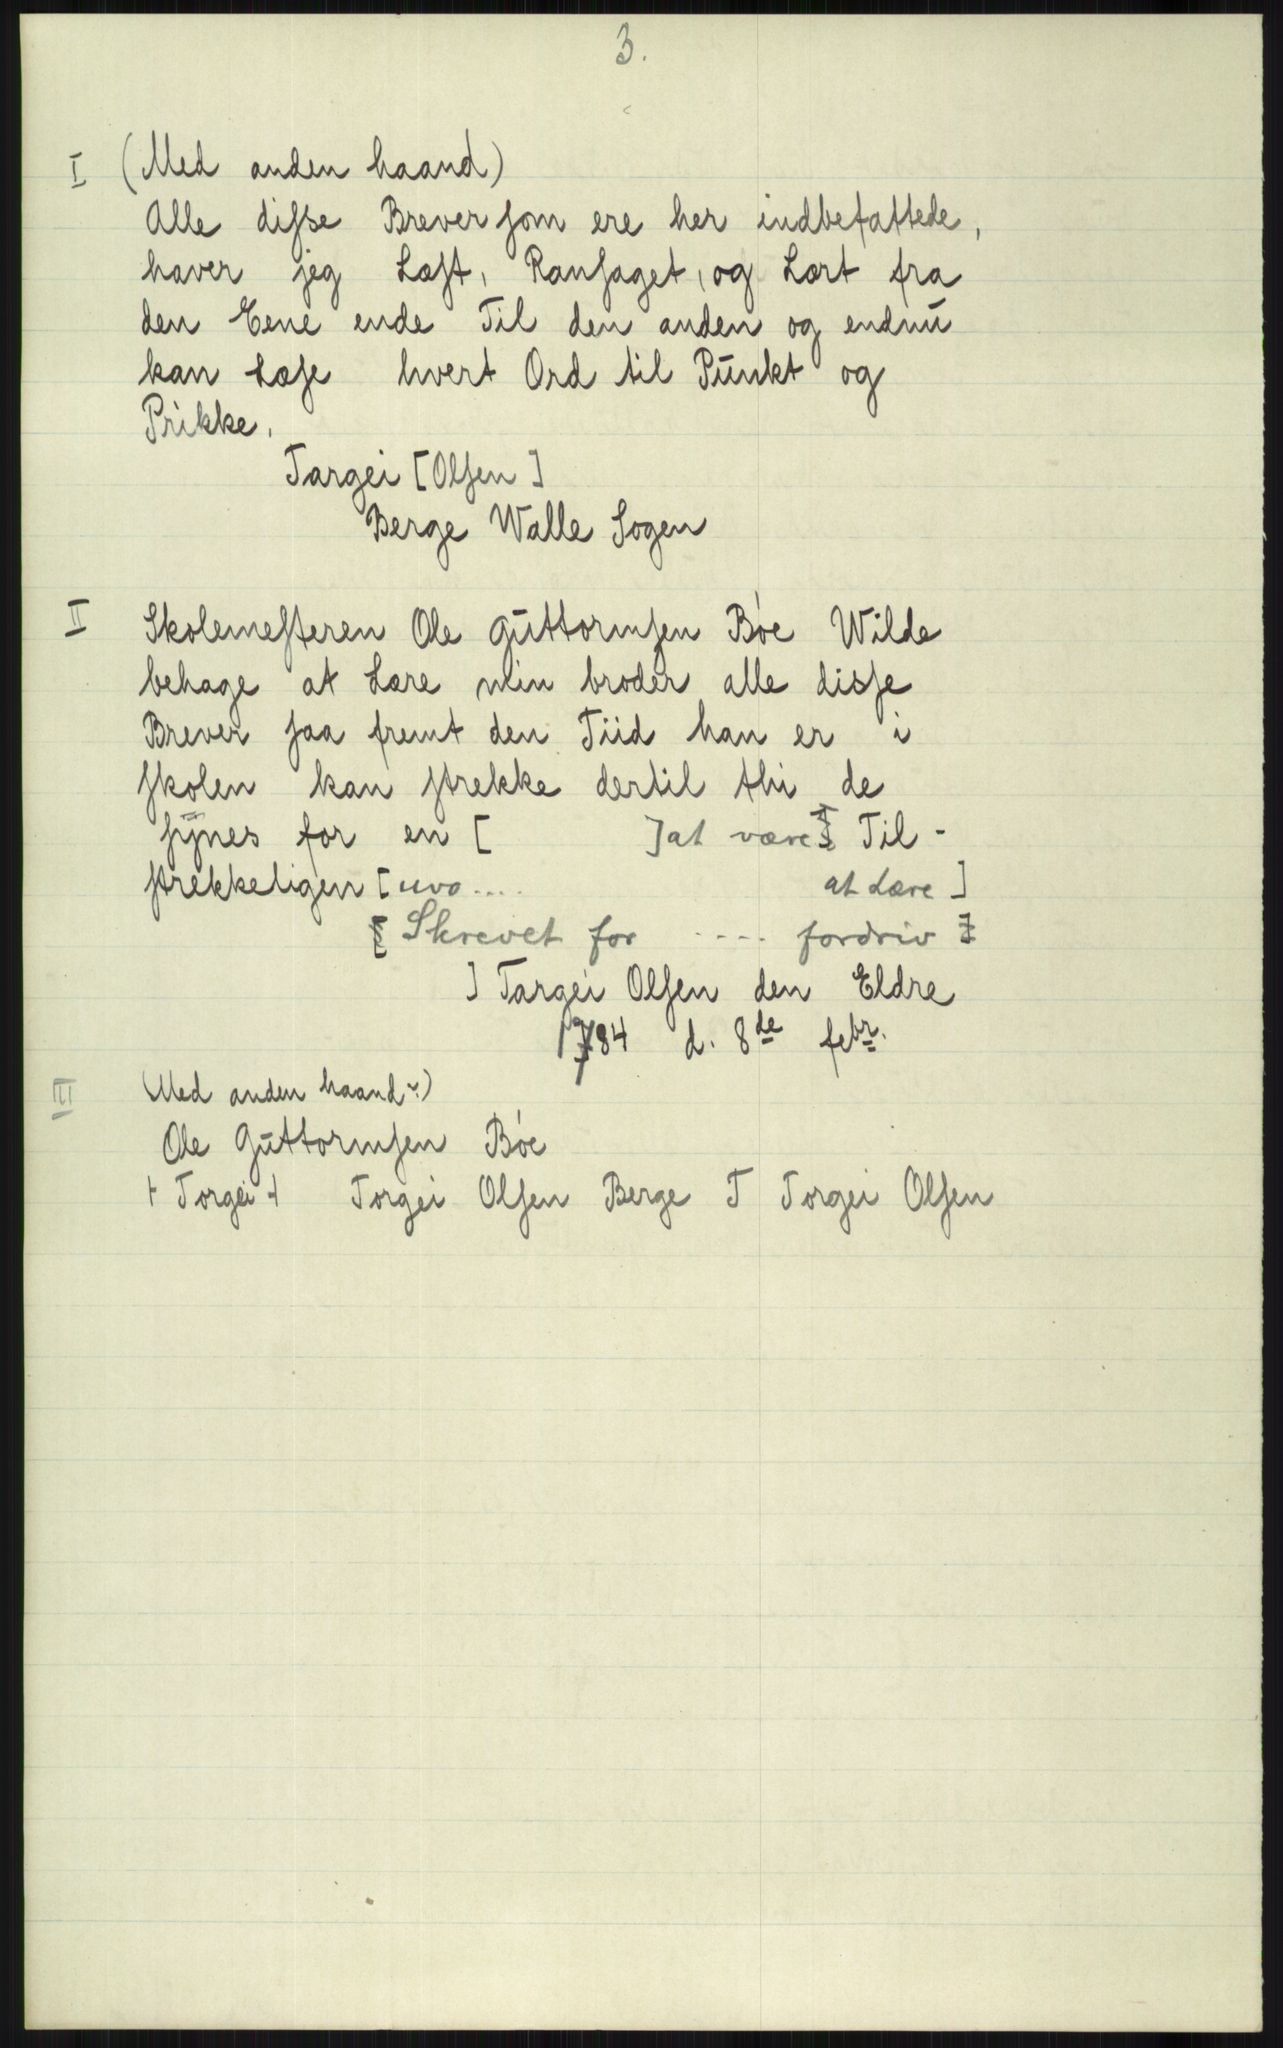 3.
I (Med anden haand)
Alle disse Brever som ere her indbefattede,
haver jeg Læst, Ransaget, og Lært fra
den Eene ende Til den anden og endnu
kan Læse hvert Ord til Punkt og
Prikke.
Targei [Olsen]
Berge Walle Sogen
II Skolemesteren Ole Guttormsen Bóe Wilde
behage at Lære min broder alle disse
Brever saa fremt den Tiid han er i
skolen kan strekke dertil thi de
sÿnes for en [ ] at være Til-
strekkeligen [uvo.... at Lære]
[Skrevet for .... fordriv]
] Targei Olsen den Eldre
1784 d. 8de febr.
III (Med anden haand?)
Ole Guttormsen Bóe
+ Torgei + Torgei Olsen Berge T Torgei Olsen